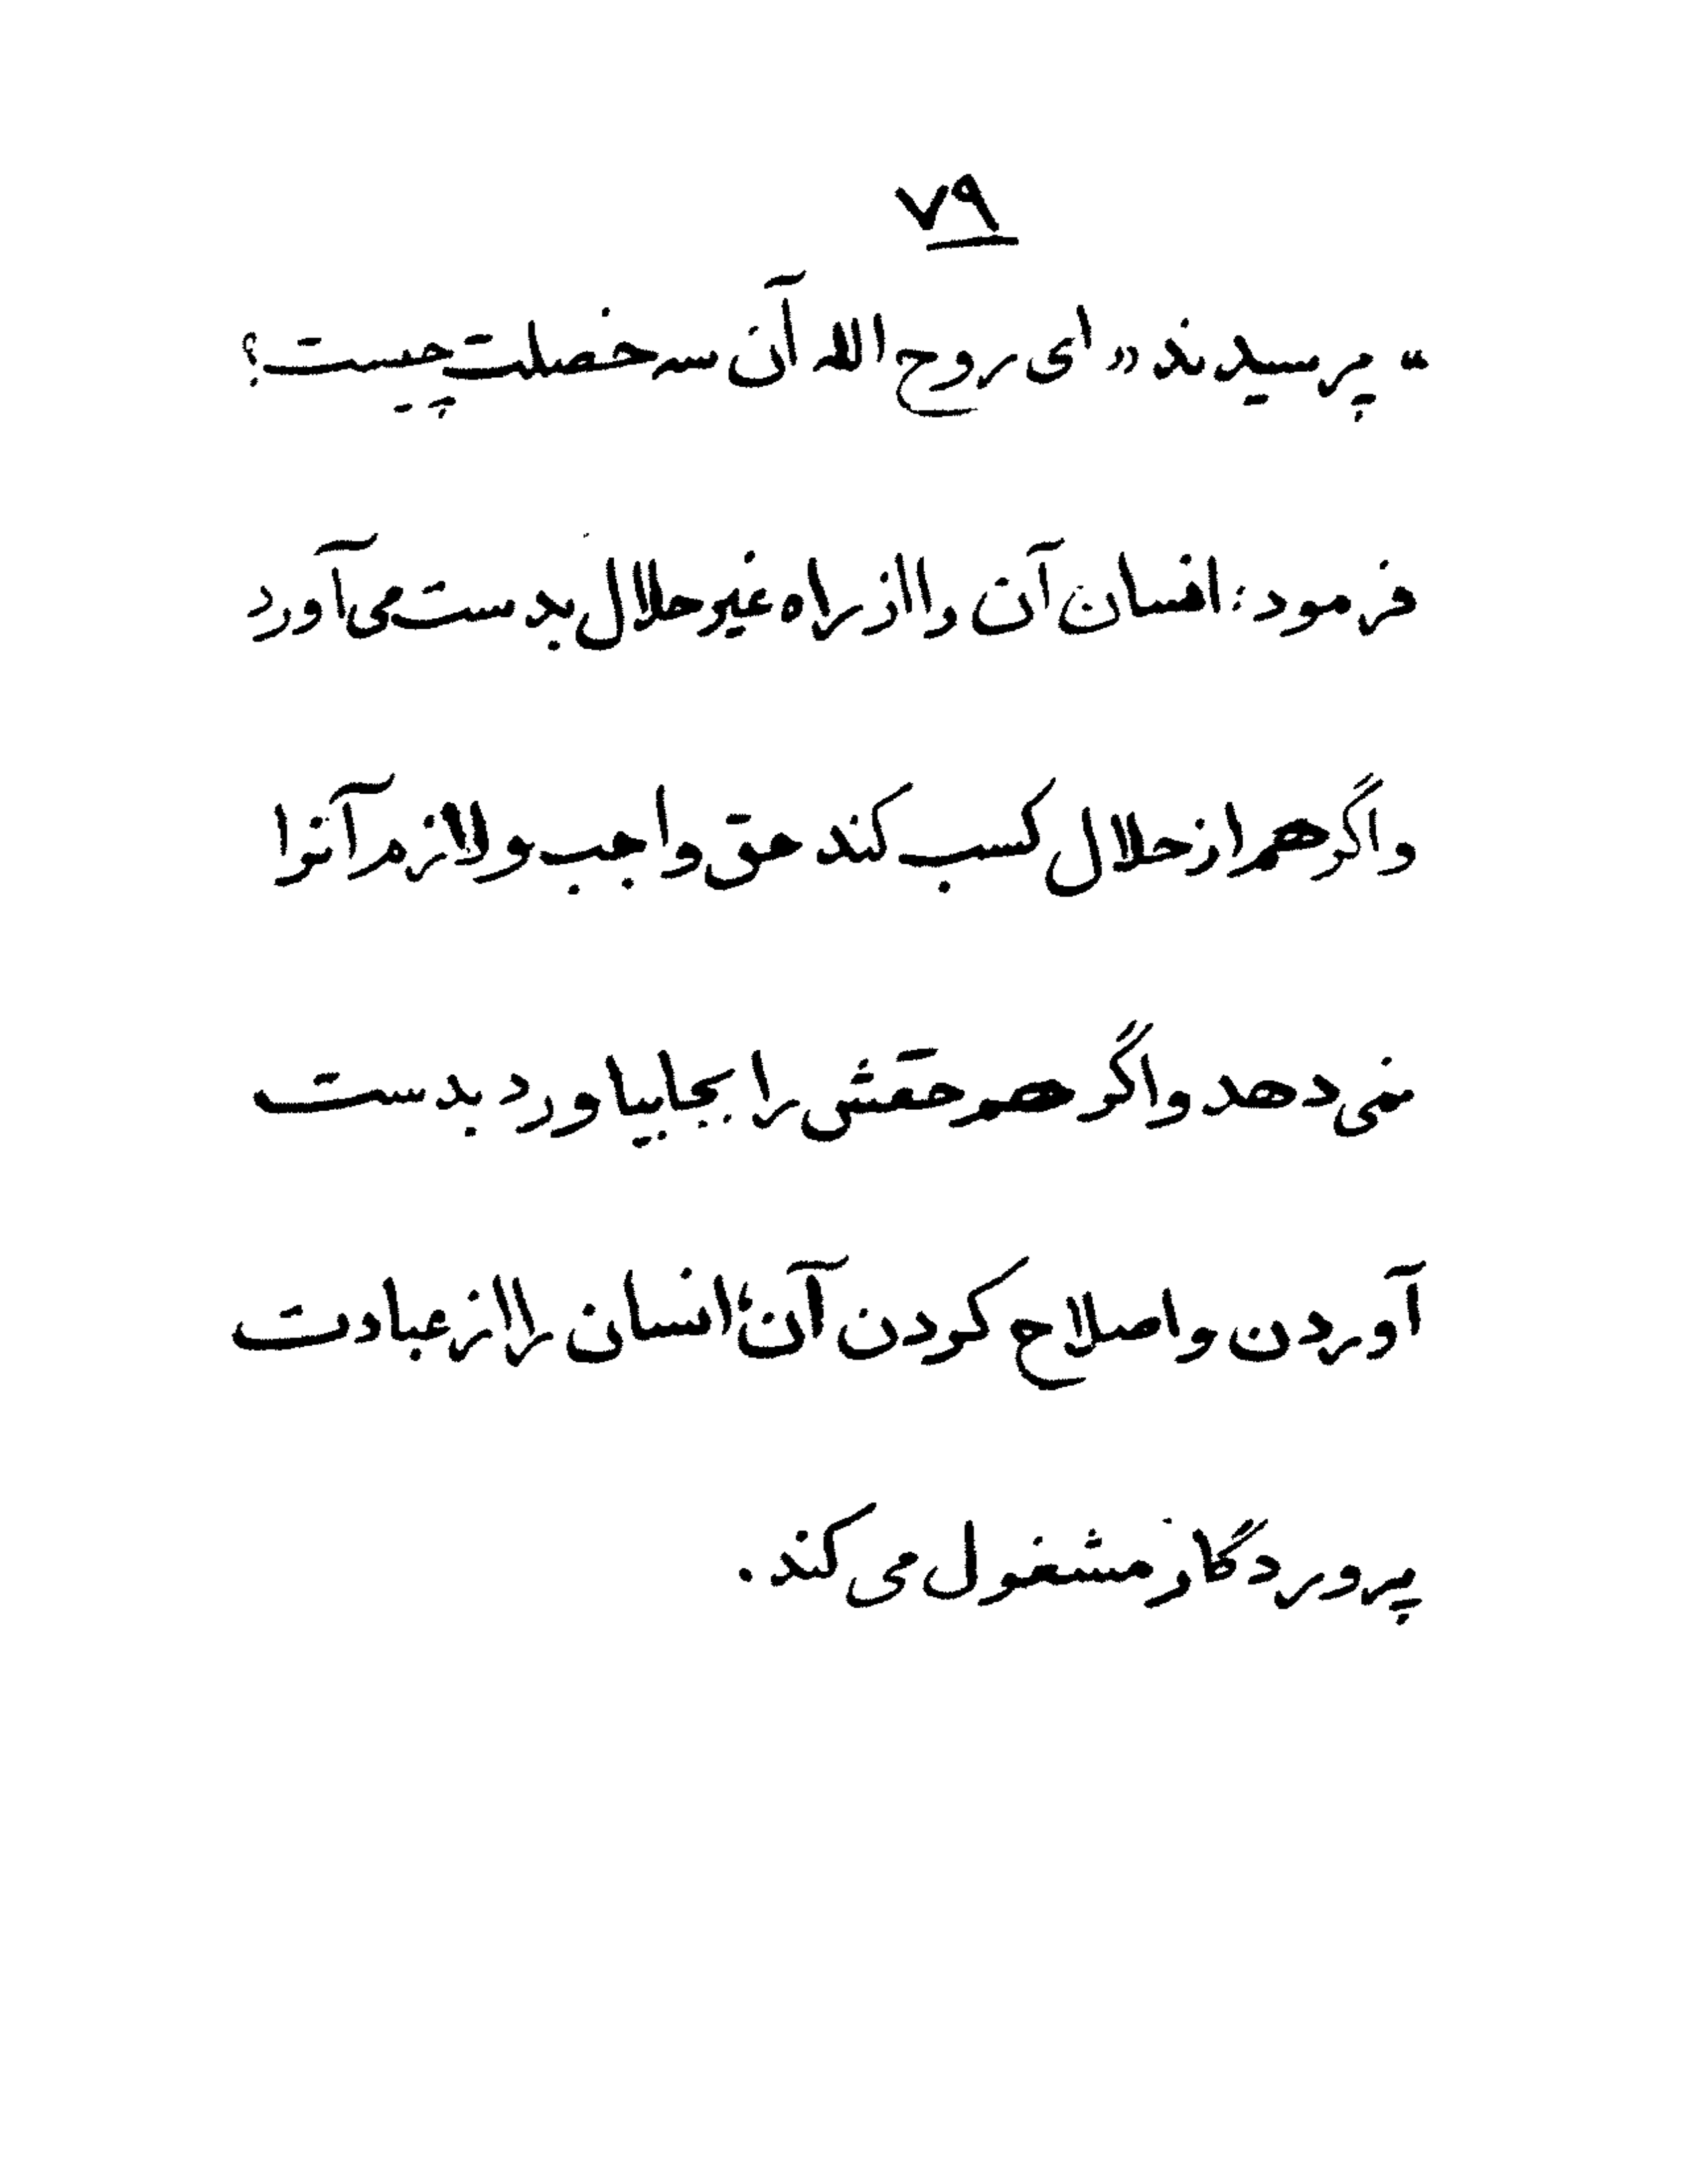 ۷۹
“ پرسیدند «ای روح الله آن سه خصلت چیست؟
فرمود: انسان آن را از راه غیر حلال بدست می‌آورد
و اگر هم از حلال کسب کند حق واجب و لازم آنرا
نمی‌دهد و اگر هم حقش را بجا بیاورد بدست
آوردن و اصلاح کردن آن؛ انسان را از عبادت
پروردگار مشغول می‌کند.